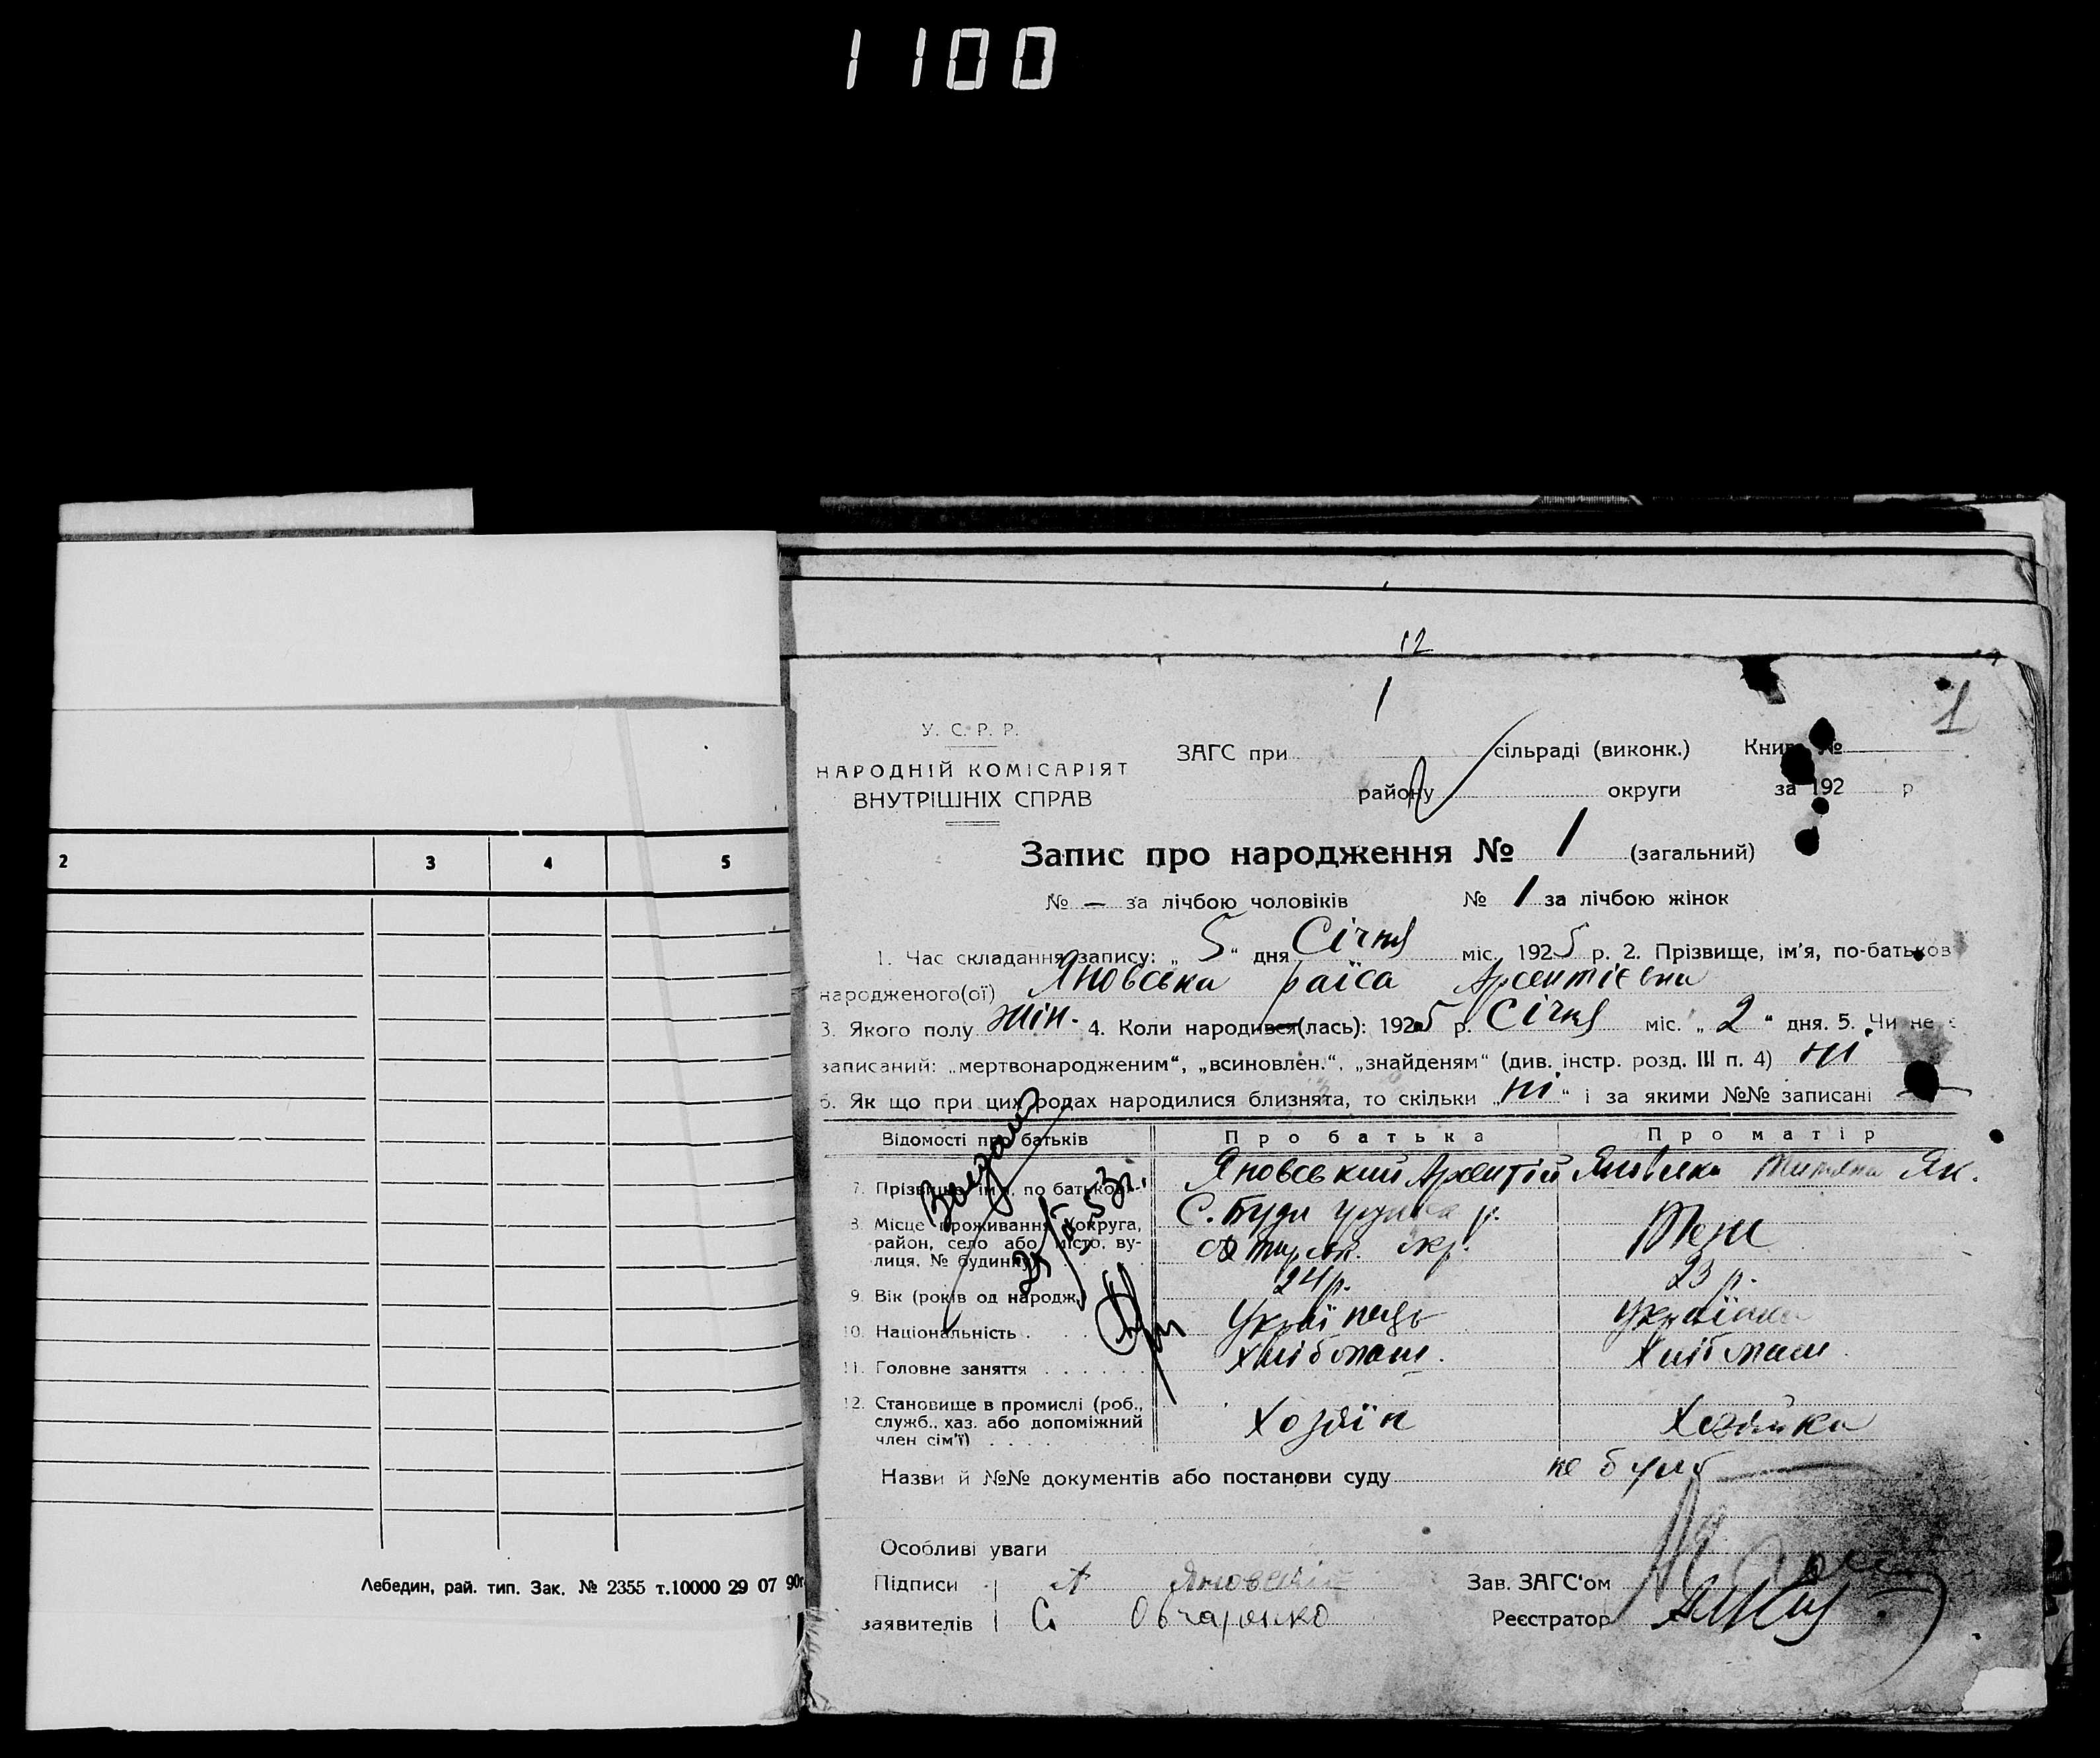 1100
12
1
1
У. С. Р. Р.
НАРОДНІЙ КОМІСАРІЯТ
ВНУТРІШНІХ СПРАВ
ЗАГС при сільраді (виконк.) Книга №
району округи за 192 р
Запис про народження № 1 (загальний)
№ — за лічбою чоловіків № 1 за лічбою жінок
1. Час складання запису: „ 5 “ дня Січня міс. 1925 р. 2. Прізвище, ім'я, по-батьков
народженого(ої) Яновська раїса Арсентієвна
3. Якого полу жін. 4. Коли народився(лась): 1925 р. Січня міс. „ 2 “ дня. 5. Чи не є
записаний: „мертвонародженим“, „всиновлен.“, „знайденям“ (див. інстр. розд. III п. 4) ні
6. Як що при цих родах народилися близнята, то скільки „ні“ і за якими №№ записані —
Відомості про батьків Про батька Про матір
7. Прізвище, ім'я, по батькові Яновський Арсентій Яновська Ян.
8. Місце проживання (округа,
район, село або місто, ву-
лиця, № будинку)
С. Буди р.
окр.
Теж
9. Вік (років од народж.) 24 р. 23 р.
10. Національність Українець Українка
11. Головне заняття Хлібопаш. Хлібопаш.
12. Становище в промислі (роб.,
служб., хаз. або допоміжний
член сім'ї) Хозяїн Хозяйка
Назви й №№ документів або постанови суду не було
Особливі уваги
Підписи А Яновский Зав. ЗАГС'ом
заявителів С. Овчаренко Реєстратор
2 3 4 5
Лебедин, рай. тип. Зак. № 2355 т.10000 29 07 90г